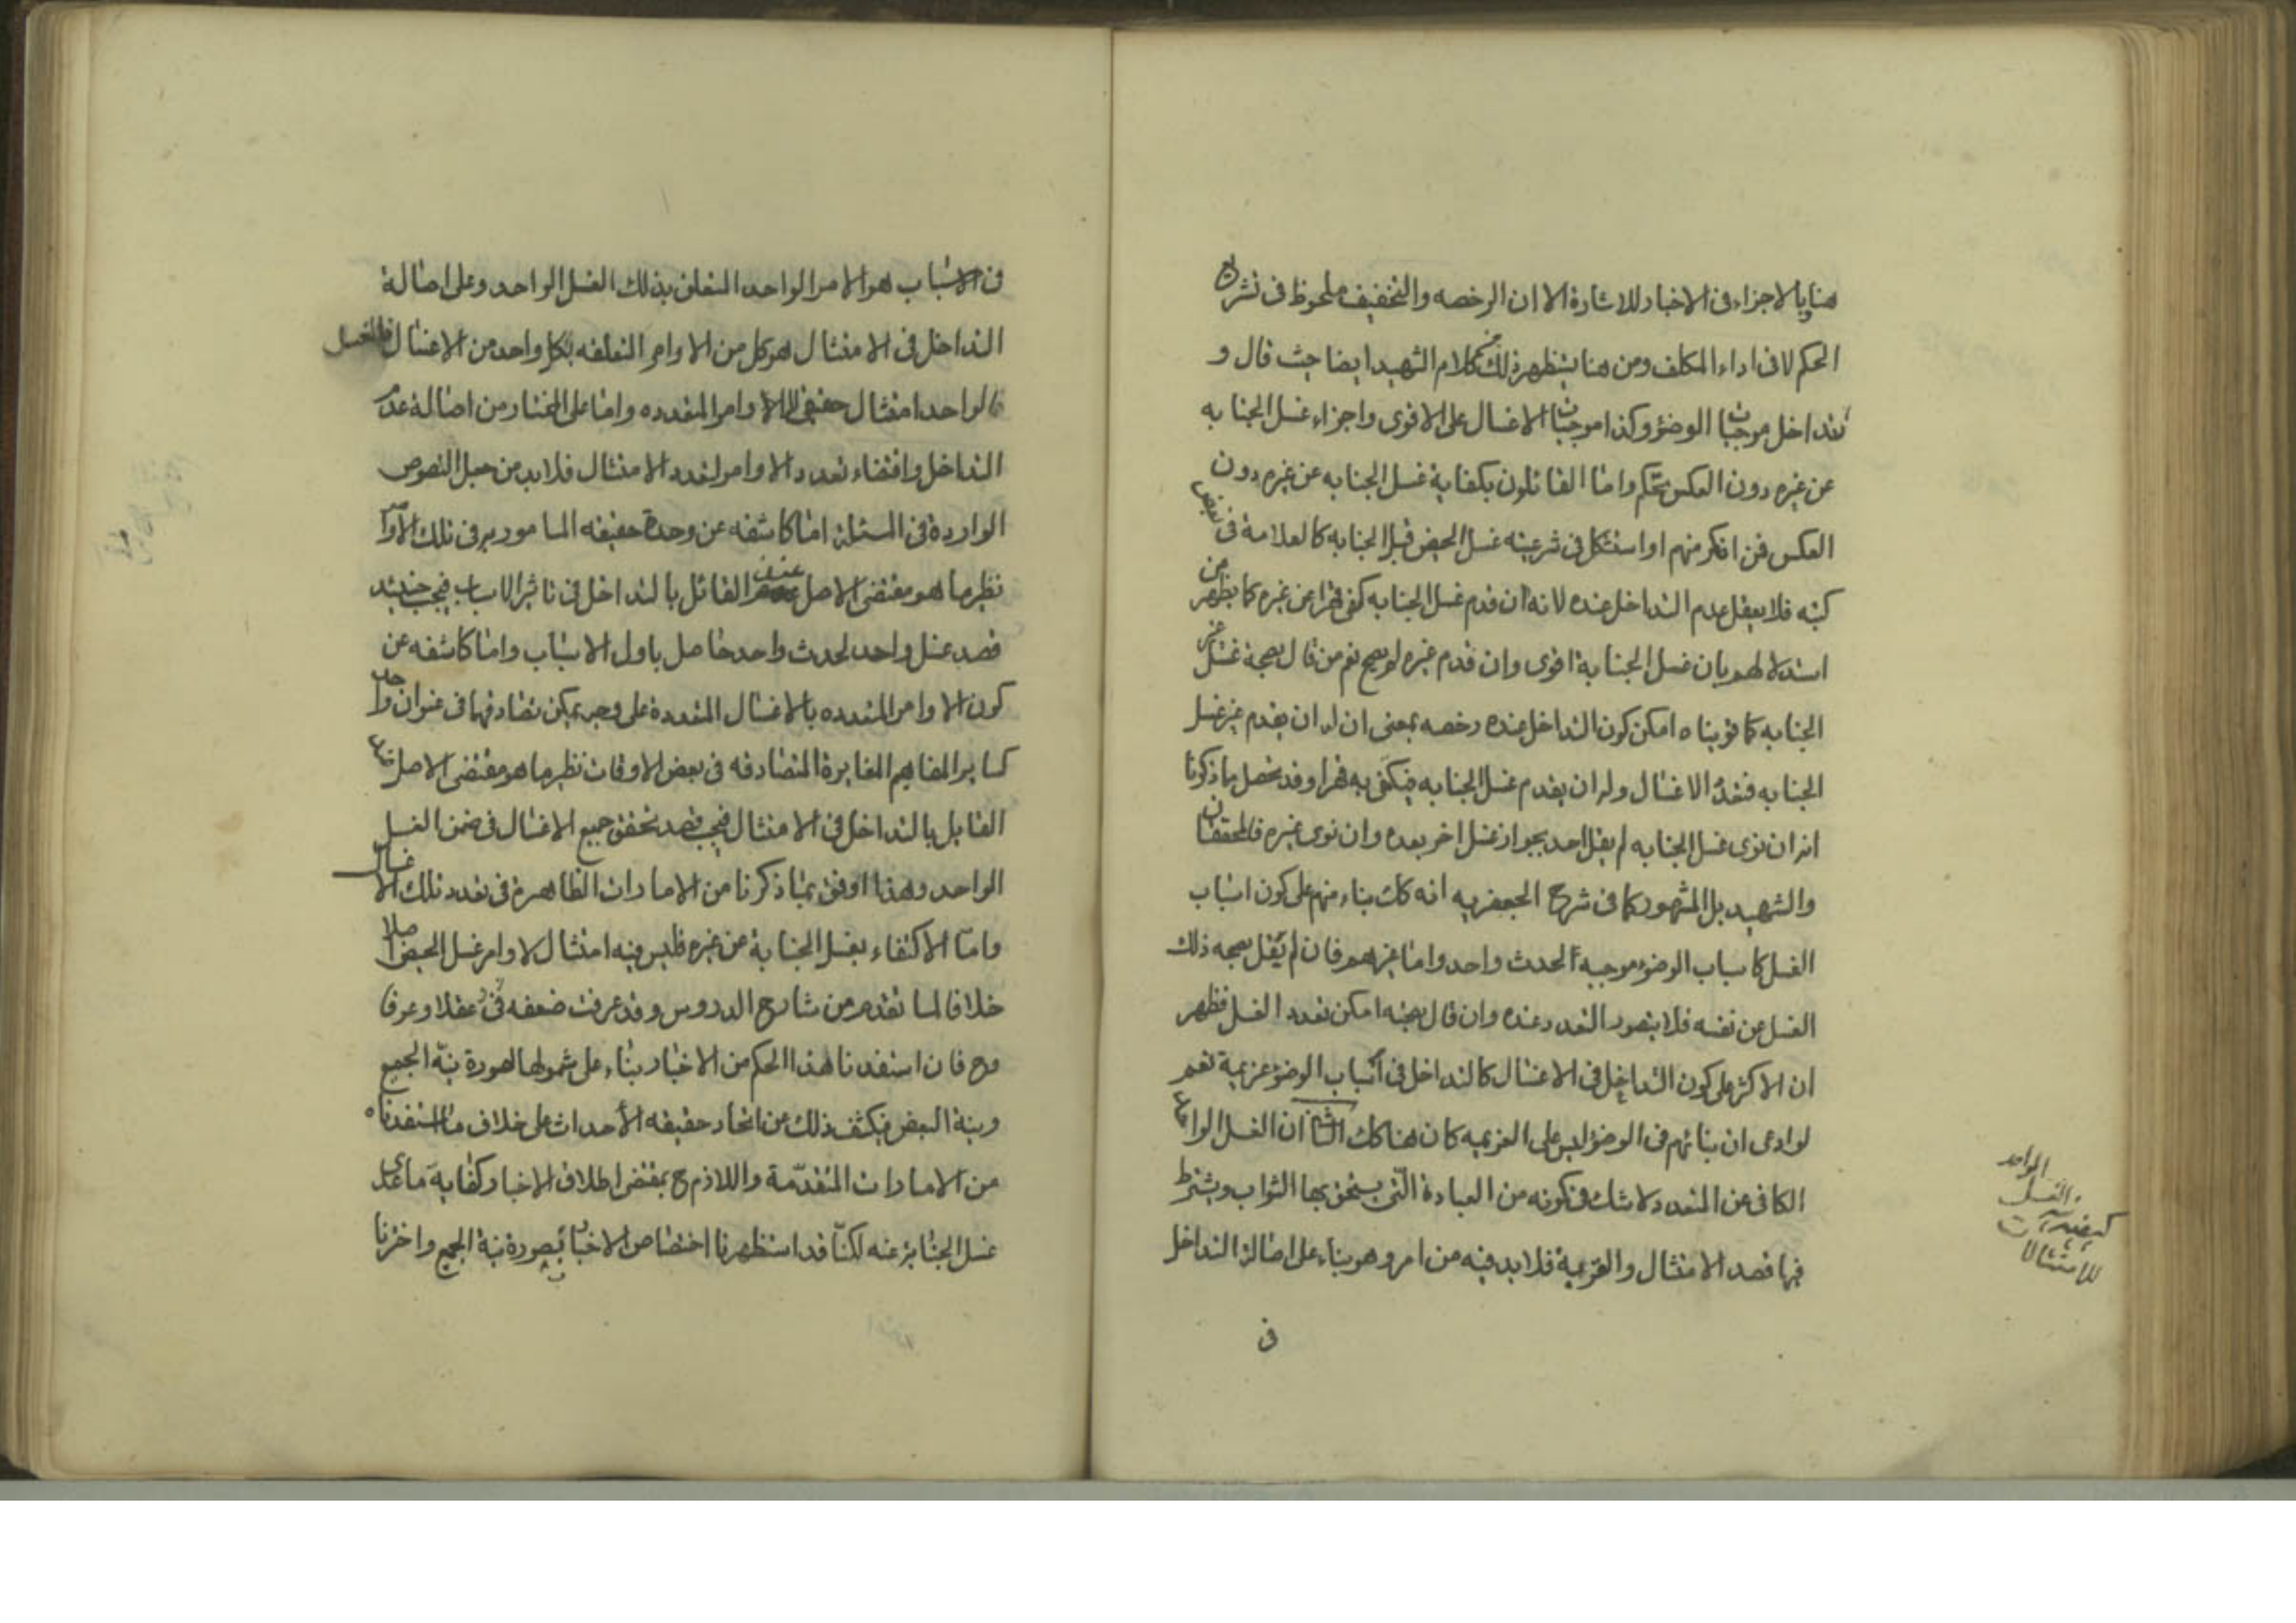 هنا بالاجزاء فى الاخبار للاشارة الا ان الرخصه والتخفيف ملحوظ فى تشريع
الحكم لا فى اداء المكلف ومن هنا يتظهر ذلك من كلام الشهيد ايضا حيث قال و
تتداخل موجبات الوضوء وكذا موجبات الاغسال على الاقوى واجزاء غسل الجنابه
عن غيره دون العكس تحكم واما القائلون بكفاية غسل الجنابه عن غيره دون
العكس فمن انكر منهم او استشكل فى شرعيته غسل الحيض قبل الجنابه كالعلامة فى بعض
كتبه فلا يعقل عدم التداخل عنده لانه ان قدم غسل الجنابه كفى قهرا عن غيره كما يظهر من
استدلالهم بان غسل الجنابة اقوى وان قدم غيره لم يصح نعم من قال بصحة غسل غير
الجنابه كما قويناه امكن كون التداخل عنده رخصه بمعنى ان له ان يقدم غير غسل
الجنابه فتعدد الاغسال وله ان يقدم غسل الجنابه فيكتفى به قهرا وقد تحصل مما ذكرنا
انه ان نوى غسل الجنابه لم يقل احد بجواز غسل اخر بعده وان نوى غيره فالمحققان
والشهيد بل المشهور كما فى شرح الجعفريه انه كك بناء منهم على كون اسباب
الغسل كاسباب الوضوء موجبه لحدث واحد واما غيرهم فان لم يقل بصحه ذلك
الغسل عن نفسه فلا يتصور التعدد عنده وان قال بصحته امكن تعدد الغسل فظهر
ان الاكثر على كون التداخل فى الاغسال كالتداخل فى اسباب الوضوء عزيمة نعم
لو ادعى ان بنائهم فى الوضوء ليس على العزيمه كان هنا كك الثانى ان الغسل الواحد
الكافى عن المتعدد لا شك فى كونه من العبادة التى يستحق بها الثواب ويشترط
فيها قصد الامتثال والقربة فلابد فيه من امر وهو بناء على اصالة التداخل
فى
الواحد
الغسل
للامتثال
فى الاسباب هو الامر الواحد المتعلق بذلك الغسل الواحد وعلى اصالة
التداخل فى الامتثال هو كل من الاوامر المتعلقه بكل واحد من الاغسال فالغسل
الواحد امتثال حقيقى للاوامر المتعدده واما على المختار من اصالة عدم
التداخل واقتضاء تعدد الاوامر لتعدد الامتثال فلابد من جعل النصوص
الواردة فى المسئلة اما كاشفه عن وحدة حقيقه المامور به فى تلك الاوامر
نظير ما هو مقتضى الاصل عند القائل بالتداخل فى تاثير الاسباب فيجب حينئذ
قصد غسل واحد لحدث واحد حاصل باول الاسباب واما كاشفه عن
كون الاوامر المتعدده بالاغسال المتعددة على وجه يمكن تصادقها فى عنوان واحد
كساير المفاهيم المغايرة المتصادقه فى بعض الاوقات نظير ما هو مقتضى الاصل عند
القايل بالتداخل فى الامتثال فيجب قصد تحقق جميع الاغسال فى ضمن الغسل
الواحد وهذا اوفق بما ذكرنا من الامارات الظاهرة فى تعدد تلك الاغسال
وامّا الاكتفاء بغسل الجنابة عن غيره فليس فيه امتثال لاوامر غسل الحيض اصلا
خلافا لما تقدم من شارح الدروس وقد عرفت ضعفه عقلا وعرفا
وح فان استفدنا هذا الحكم من الاخبار بناء على شمولها لصورة نيّة الجميع
ونية البعض فيكشف ذلك عن اتحاد حقيقه الأحداث على خلاف ما استفدناه
من الامارات المتقدّمة واللازم ح بمقتضى اطلاق الاخبار كفاية ما عدى
غسل الجنابة عنه لكنّا قد استظهرنا اختصاص الاخبار بصورة نية الجميع واخترنا